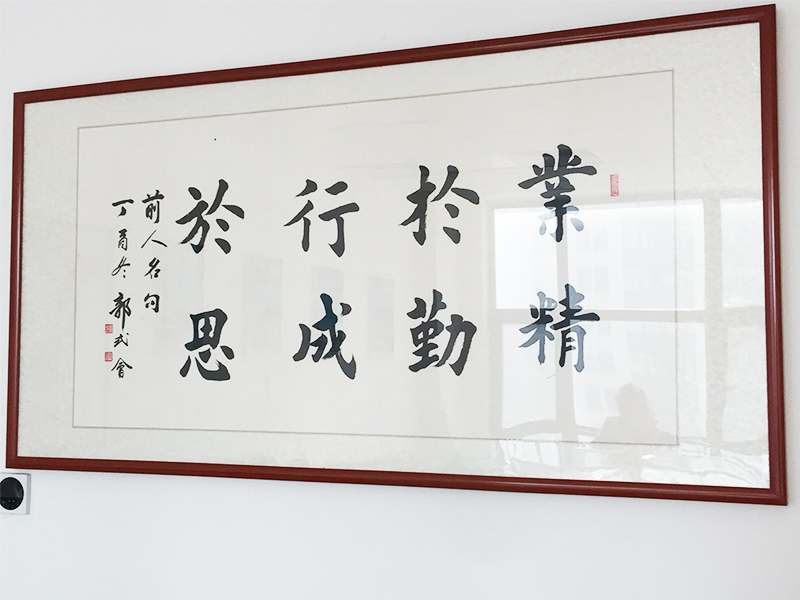 業精
於勤
行成
於思
前人名句
丁酉冬 郭 會